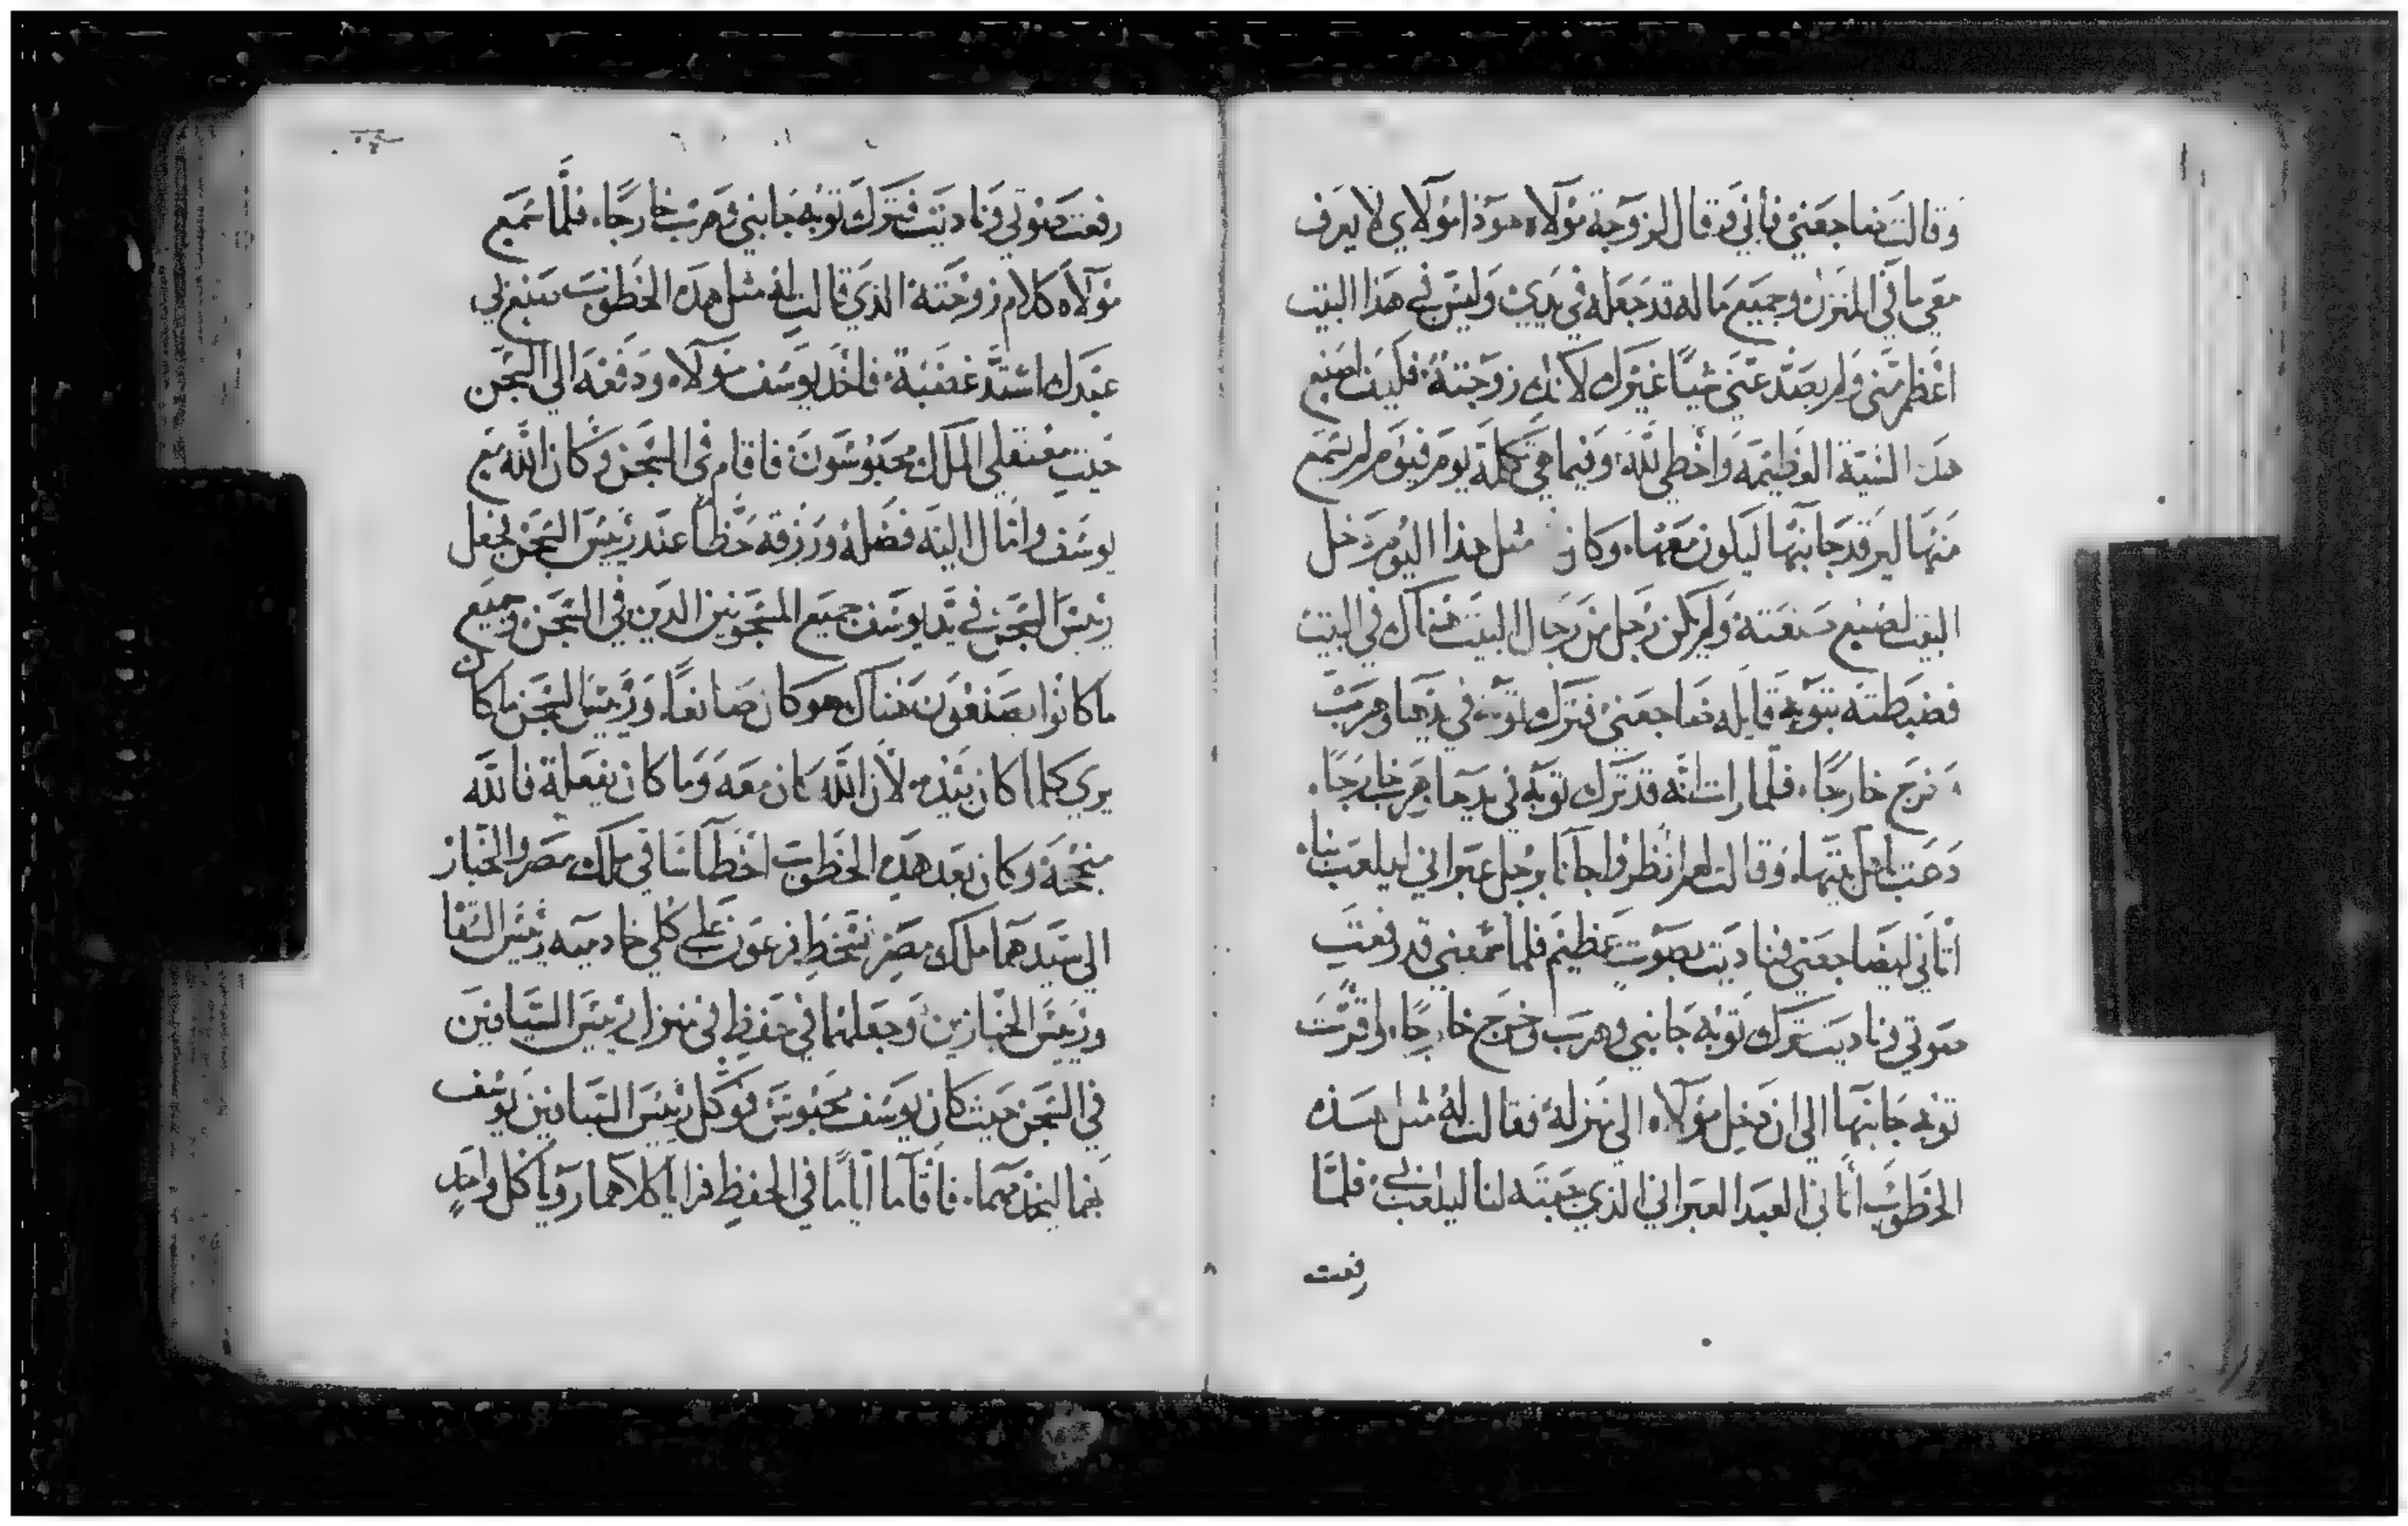 وقالت ضاجعني فابي وقال لزوجة مولاه هوذا مولاي لا يعرف
معي ما في المنزل وجميع ماله قد جعله في يدي وليس في هذا البيت
اعظم مني ولم يصد عني شيًا غيرك لانك زوجته فكيف اصنع
هذه السيّة العظيمة واخطي لله وفيما هي تكلمه يوم فيوم لم يسمع
منها ليرقد جانبها ليكون معها وكان مثل هذا اليوم دخل
البيت ليصنع صنعته ولم يكن رجل من رجال البيت هناك في البيت
فضبطته بثوبه قايله ضاجعني فترك ثوبه في يدها وهرب
وخرج خارجًا فلما رات انه قد ترك ثوبه في يدها وهرب خارجًا
دعت اهل بيتها وقالت لهم انظروا جانا برجل عبراني ليلعب بنا
اتاني ليضاجعني فناديت بصوت عظيم فلما سمعني قد رفعت
صوتي وناديت ترك ثوبه جانبي وهرب وخرج خارجًا واقرت
ثوبه جانبها الي ان دخل مولاه الي منزله فقالت له مثل هذه
الخطوب اتاني العبد العبراني الذي جبته لنا ليلعب بي فلما
رفعت
رفعت صوتي وناديت فترك ثوبه جانبي وهرب خارجًا فلما سمع
مولاه كلام زوجته الذي قالت له مثل هذه الخطوب صنع لي
عبدك اشتد غضبه فاخذ يوسف مولاه ودفعه الي السجن
حيث معتقلي الملك محبوسون فاقام في السجن وكان الله مع
يوسف وانال اليه فضله ورزقه حظًا عند رييس السجن فجعل
رييس السجن في يد يوسف جميع المسجونين الذين في السجن وجميع
ما كانوا يصنعون هناك هو كان صانعًا ورييس السجن ما كان
يري كلما كان بيده لان الله كان معه وما كان يفعله فالله
منجحه وكان بعد هذه الخطوب اخطا ساقي ملك مصر والخباز
الي سيدهما ملك مصر فسخط فرعون علي كلي خادميه رييس السقا
ورييس الخبازين وجعلهما في حفظ في منزل رييس السيافين
في السجن حيث كان يوسف محبوس فوكل رييس السيافين يوسف
بهما ليخدمهما فاقاما ايامًا في الحفظ فرايا كلاهما رويا كل واحد